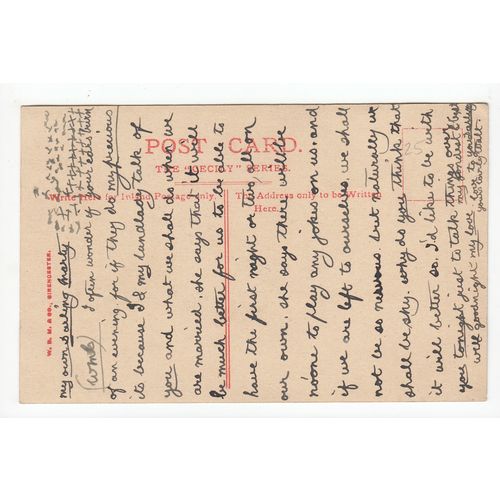 POST CARD.
THE "CECILY" SERIES.
Write Here for Inland Postage only.
The Address only to be Written Here.
W. D. M. & CO., CIRENCESTER.
25
my own darling Marty
I often wonder if your ears burn
of an evening for if they do my precious
its because I & my landlady talk of
you and what we shall do when we
are married, she says that it will
be much better for us to be able to
have the first night or two all on
our own. she says there will be
noone to play any jokes on us. and
if we are left to ourselves we shall
not be so nervous. but naturally we
shall be shy. why do you think that
it will better so. I'd like to be with
you tonight just to talk things over
well goodnight my love
my fondest & best
love to you darling
your loving Matt.